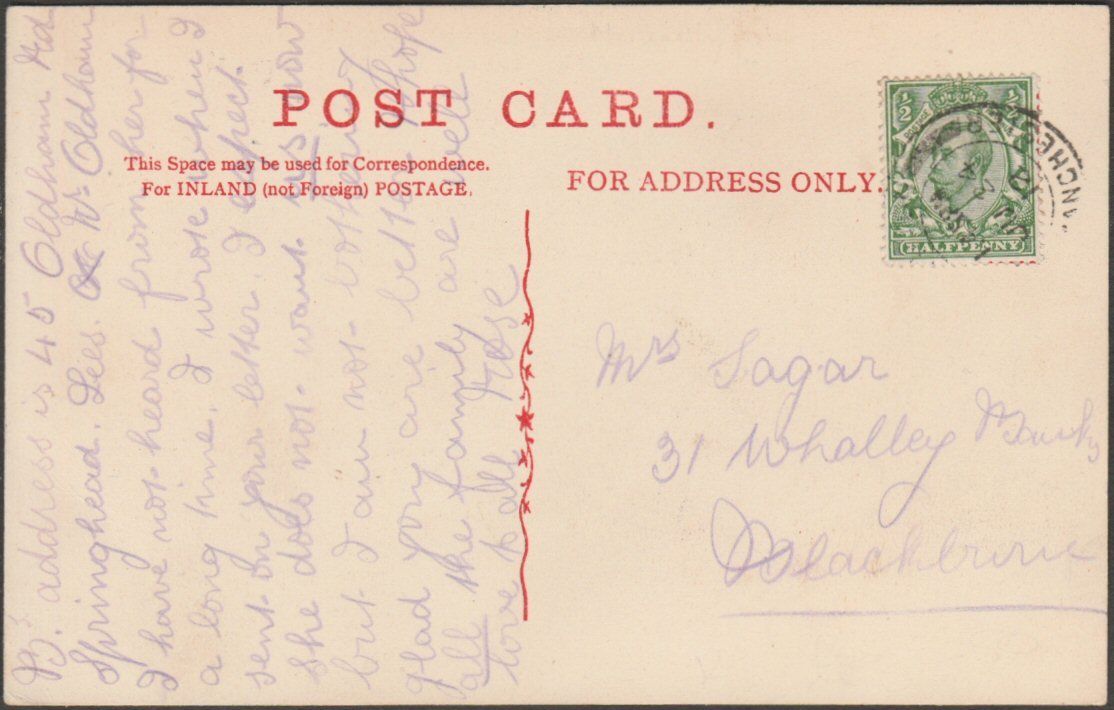 POST CARD.
This Space may be used for Correspondence.
For INLAND (not Foreign) POSTAGE.
FOR ADDRESS ONLY.
½ ½
HALFPENNY
B's address is 45 Oldham Rd
Springhead. Lees. Nr Oldham
I have not heard from her for
a long time. I wrote when I
sent on your letter. I expect
she does not want us now
but I am not bothering
glad you are better. I hope
all the family are well
love to all Rose
Mrs Sagar
31 Whalley Bank
Blackburn